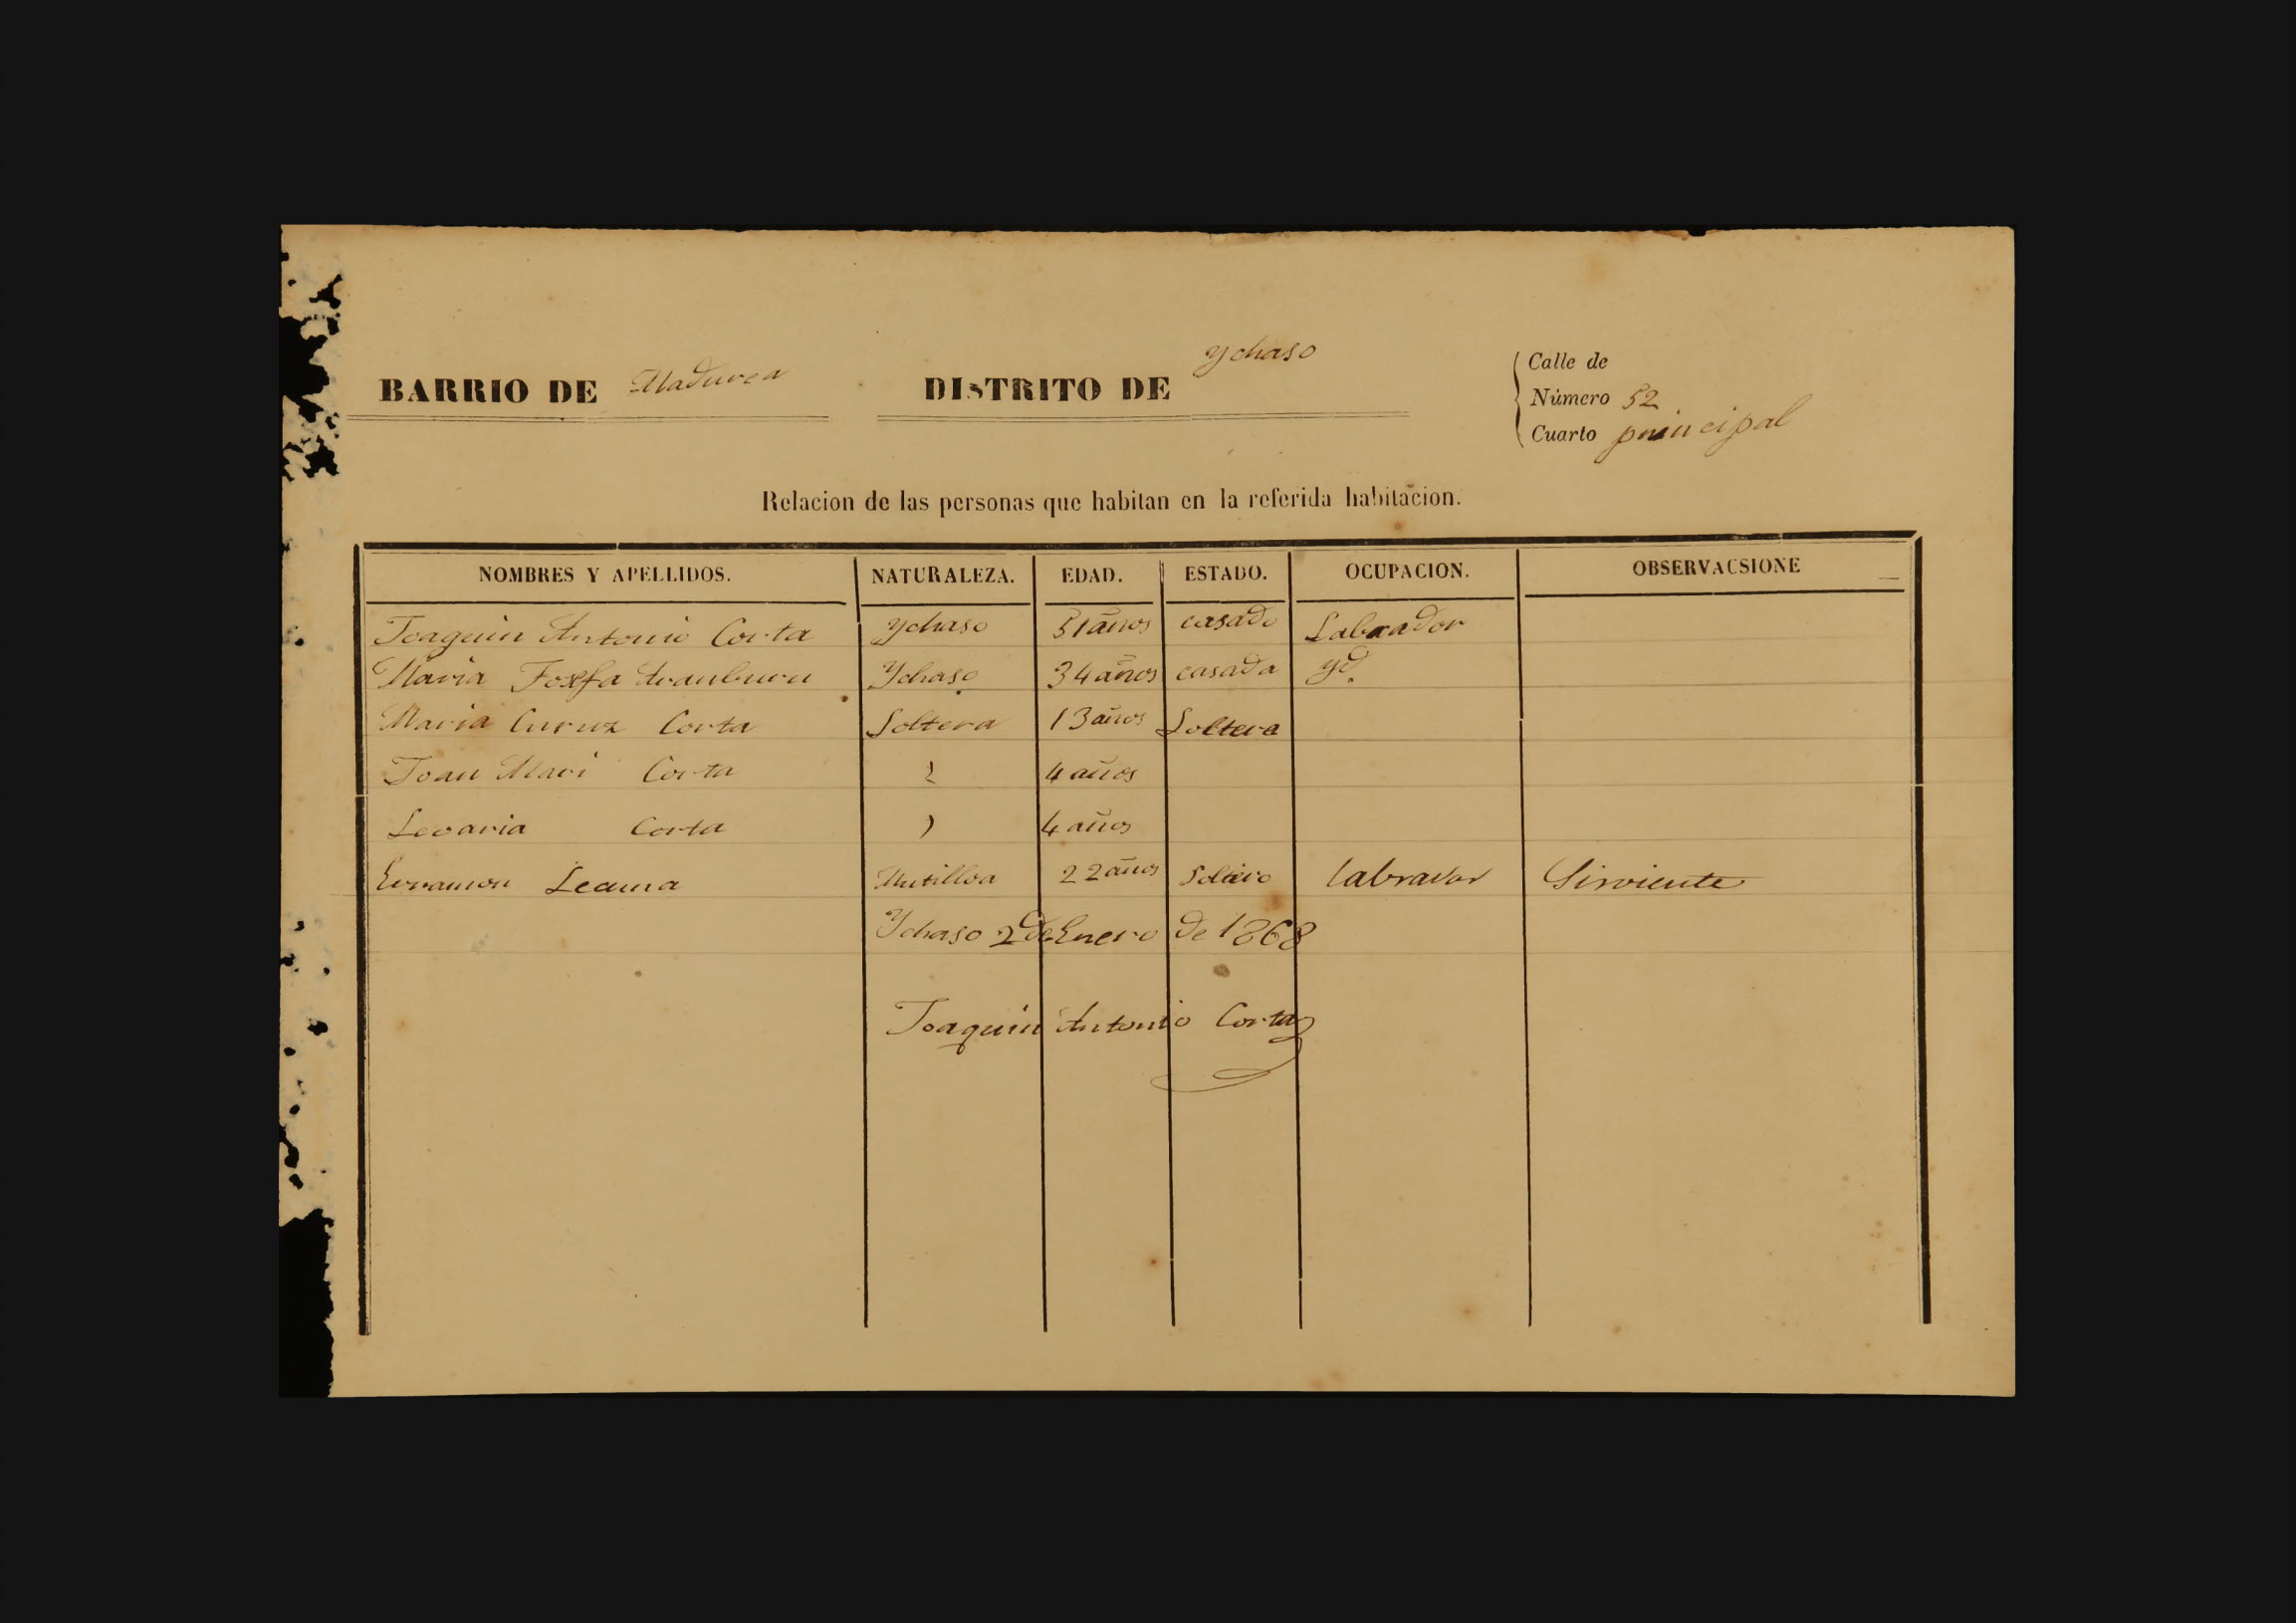 BARRIO DE Madurea DISTRITO DE Ychaso
Calle de
Número 52
Cuarto principal
Relacion de las personas que habitan en la referida habitacion.
NOMBRES Y APELLIDOS. NATURALEZA. EDAD. ESTADO. OCUPACION. OBSERVACSIONE
Joaquin Antonio Corta Ychaso 51 años casado Labrador
Maria Ychaso 34 años casada yd.
Maria Curuz Corta Soltera 13 años Soltera
Joan Mari Corta 4 años
Corta 4 años
Erramon Lecuna Mutilloa 22 años Labrador Sirviente
Ychaso 2 de Enero de 1868
Joaquin Antonio Corta